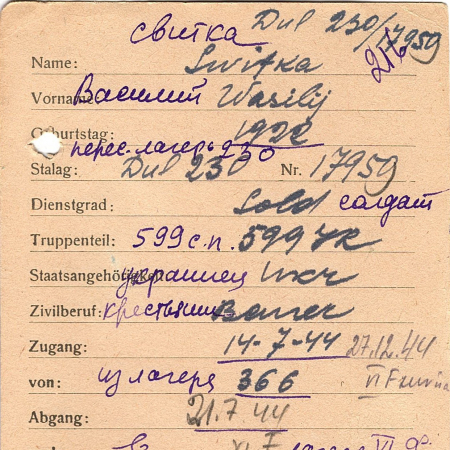 свитка Dul 230/17959
216
Name: Switka
Vorname: Василий Wasilij
Geburtstag: 1922
перес. лагерь 230
Stalag: Dul 230 Nr. 17959
Dienstgrad: Sold солдат
Truppenteil: 599 с.п. 599 JR
Staatsangehörigkeit: украинец Ukr
Zivilberuf: крестьянин Bauer
Zugang: 14-7-44 27.12.44
von: из лагеря 366 VI F
Abgang: 21.7 44